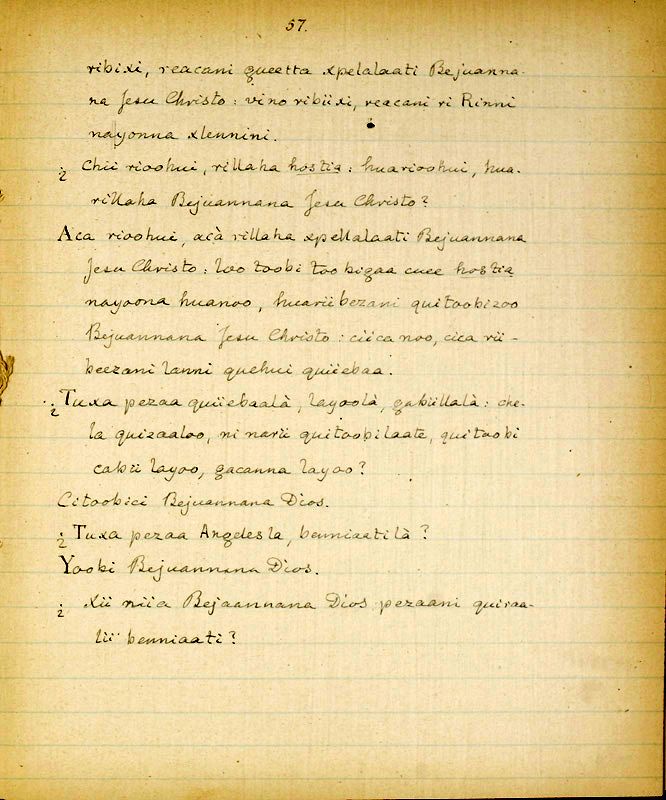 57.
ribixi, reacani queetta xpelalaati Bejuanna-
na Jesu Christo: vino ribiixi, reacani ri Rinni
nayonna xlennini.
¿ Chii rioohui, rillaha hostia: huarioohui, hua-
rillaha Bejuannana Jesu Christo?
Aca rioohui, acà rillaha xpellalaati Bejuannana
Jesu Christo: loo toobi too bigaa cuee hostia
nayoona huanoo, huarii bezani quitoobizoo
Bejuannana Jesu Christo: ciica noo, cica rii-
beezani lanni quehui quiiebaa.
¿ Tuxa pezaa quiiebaalà, layoolà, gabiillalà: che-
la quizaaloo, ni narii quitoobilaate, quitoobi
cabii layoo, gacanna layoo?
Citoobici Bejuannana Dios.
¿ Tuxa pezaa Angelesla, benniaatilà?
Yoobi Bejuannana Dios.
¿ Xii niia Bejaannana Dios pezaani quiraa-
lii benniaati?